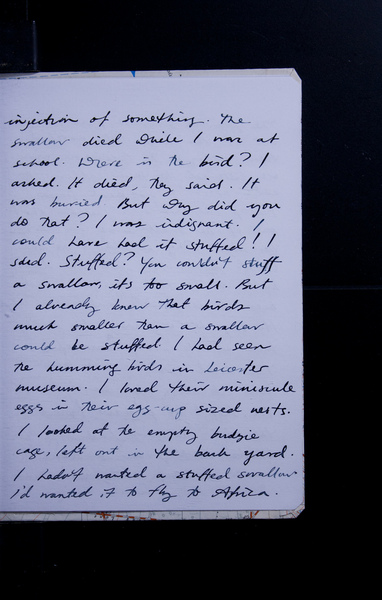 injection of something. The
swallow died while I was at
school. Where is the bird? I
asked. It died, they said. It
was buried. But why did you
do that? I was indignant. I
could have had it stuffed! I
said. Stuffed? You couldn't stuff
a swallow, it's too small. But
I already knew that birds
much smaller than a swallow
could be stuffed. I had seen
the humming birds in Leicester
museum. I loved their miniscule
eggs in their egg-cup sized nests.
I looked at the empty budgie
cage, left out in the back yard.
I hadn't wanted a stuffed swallow
I'd wanted it to fly to Africa.